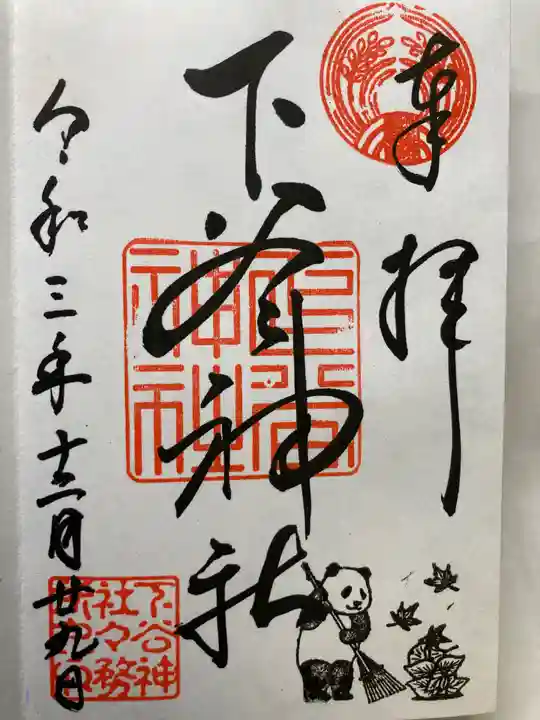 奉拝
下谷神社
令和三年十二月廿九日
下谷神
社々務
所之印